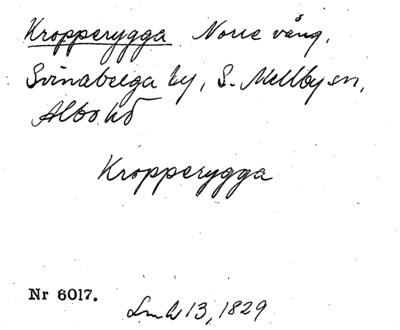 Kropperygga Norre vång,
Svinaberga by, S. Mellby sn,
Albo hd
Kropperygga
Nr 6017.
Lmh 13, 1829